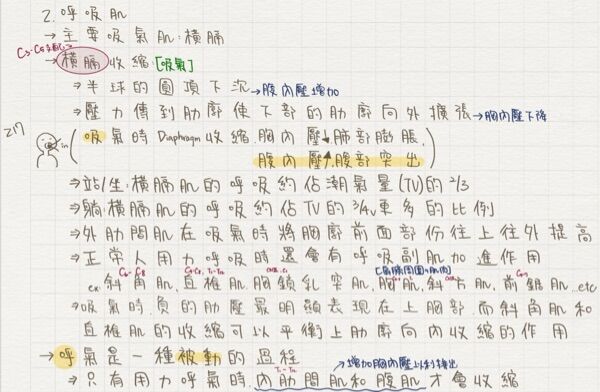 2. 呼吸肌
→ 主要吸氣肌:橫膈
C3-C5支配
→ 橫膈收縮:[吸氣]
⇒ 半球的圓頂下沉 → 腹內壓增加
⇒ 壓力傳到肋廓使下部的肋廓向外擴張 → 胸內壓下降
217
in
(吸氣時Diaphragm收縮.胸內壓↓肺部膨脹,
腹內壓↑.腹部突出)
⇒ 站/坐:橫膈肌的呼吸約佔潮氣量(TV)的2/3
⇒ 躺:橫膈肌的呼吸約佔TV的3/4v更多的比例
⇒ 外肋間肌在吸氣時將胸廓前面部份往上往外提高
⇒ 正常人用力呼吸時還會有呼吸副肌加進作用
[肩胛周圍的肌肉]
ex: 斜角肌,直椎肌,胸鎖乳突肌,胸肌,斜方肌,前鋸肌..etc
⇒ 吸氣時,負的肋壓最明顯表現在上胸部.而斜角肌和
直椎肌的收縮可以平衡上肋廓向內收縮的作用
→ 呼氣是一種被動的過程
→ 增加胸內壓以利排出
⇒ 只有用力呼氣時,內肋間肌和腹肌才會收縮